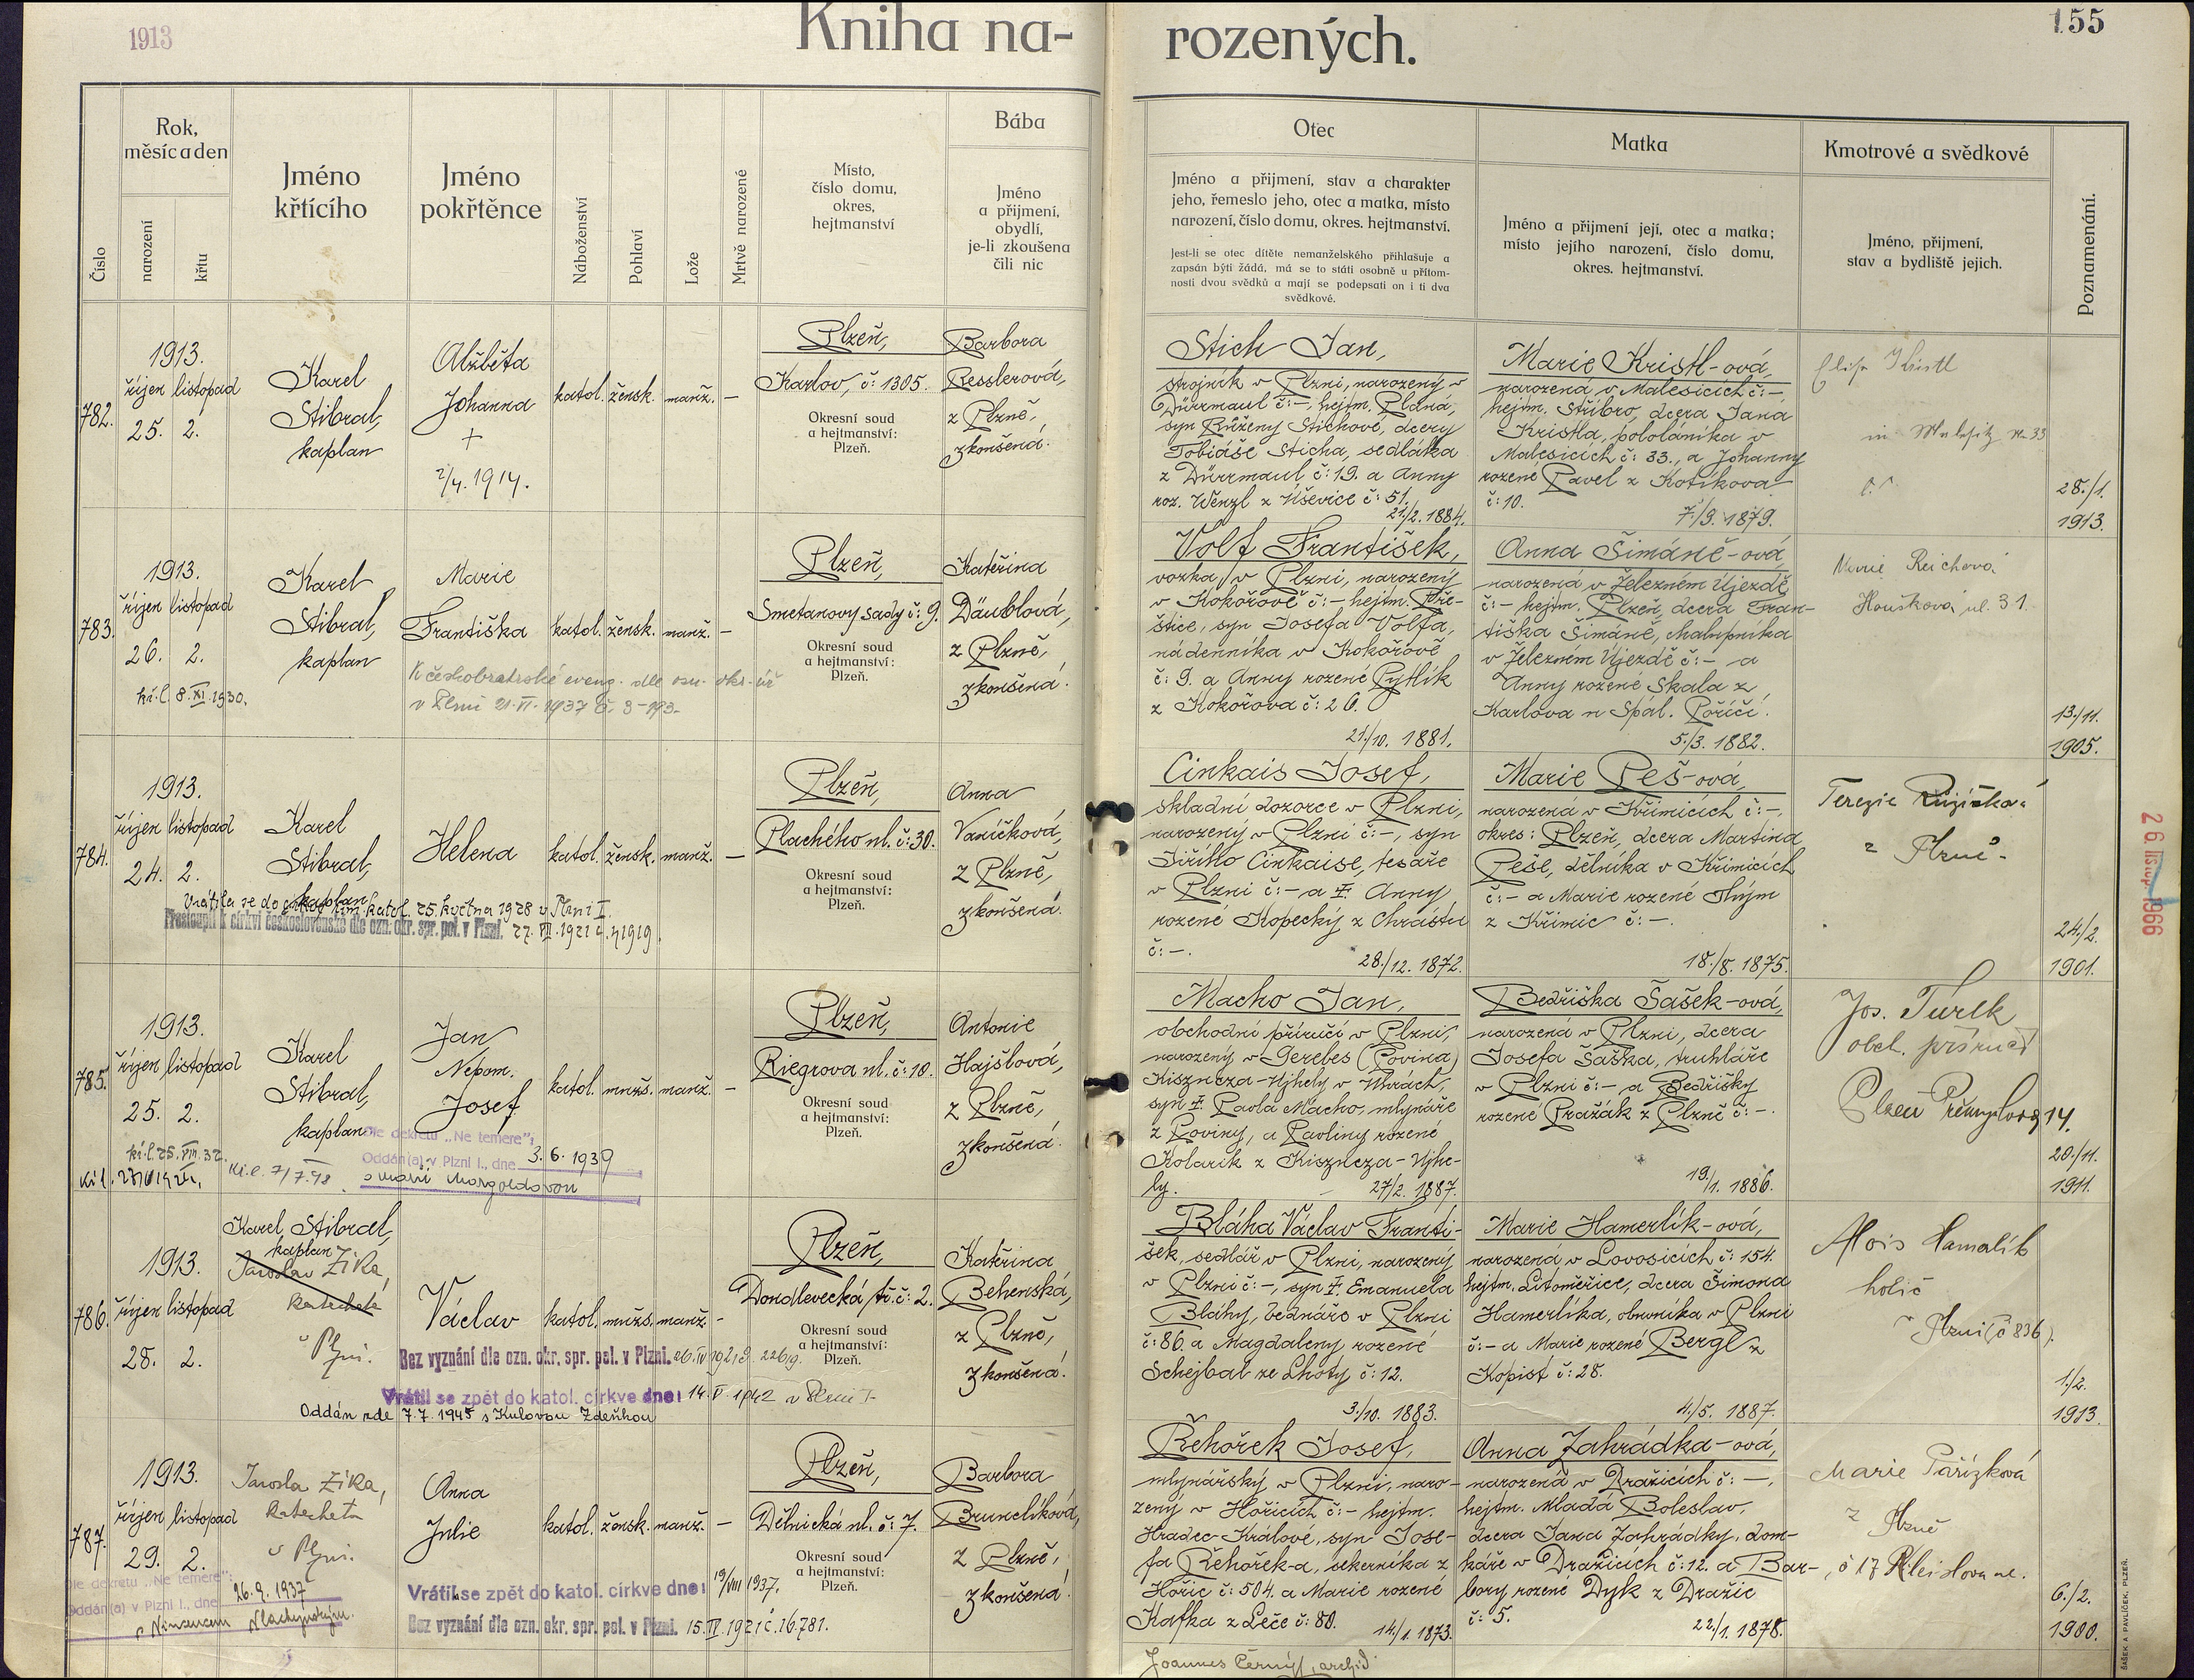 1913
Kniha na-
rozených.
155
Číslo
Rok,
měsíc a den
narození
křtu
Jméno
křtícího
Jméno
pokřtěnce
Náboženství
Pohlaví
Lože
Mrtvě narozené
Místo,
číslo domu,
okres,
hejtmanství
Bába
Jméno
a přijmení,
obydlí,
je-li zkoušena
čili nic
Otec
Jméno a přijmení, stav a charakter
jeho, řemeslo jeho, otec a matka, místo
narození, číslo domu, okres. hejtmanství.
Jest-li se otec dítěte nemanželského přihlašuje a
zapsán býti žádá, má se to státi osobně u přítom-
nosti dvou svědků a mají se podepsati on i ti dva
svědkové.
Matka
Jméno a přijmení její, otec a matka;
místo jejího narození, číslo domu,
okres. hejtmanství.
Kmotrové a svědkové
Jméno, přijmení,
stav a bydliště jejich.
Poznamenání.
782.
1913.
říjen listopad
25. 2.
Karel
Stibral,
kaplan
Alžběta
Johanna
+
2/4. 1914.
katol. žensk. manž. —
Plzeň,
Karlov, č: 1305.
Okresní soud
a hejtmanství:
Plzeň.
Barbora
Resslerová,
z Plzně,
zkoušená.
Stich Jan,
strojník v Plzni, narozený v
Dürrmaul č: -, hejtm. Planá,
syn Růženy Stichové, dcery
Tobiáše Sticha, sedláka
z Dürrmaul č: 19. a Anny
roz. Wenzl z Úševice č: 51.
21./2. 1884.
Marie Kristl-ová,
narozená v Malesicích č: -,
hejtm. Stříbro, dcera Jana
Kristla, pololáníka v
Malesicích č: 33., a Johanny
rozené Pavel z Kotíkova
č: 10.
7./9. 1879.
28./1.
1913.
783.
1913.
říjen listopad
26. 2.
kř. l. 8. XI. 1930.
Karel
Stibral,
kaplan
Marie
Františka
katol. žensk. manž. —
K českobratrské evang. dle
v Plzni 21. VI. 1937
Plzeň,
Smetanovy sady č: 9.
Okresní soud
a hejtmanství:
Plzeň.
Kateřina
Däublová,
z Plzně,
zkoušená.
Volf František,
vozka v Plzni, narozený
v Kokořově č: - hejtm. Pře-
štice, syn Josefa Volfa,
nádenníka v Kokořově
č: 9. a Anny rozené Pytlík
z Kokořova č: 26.
21./10. 1881.
Anna Šimáně-ová,
narozená v Železném Újezdě
č: - hejtm. Plzeň, dcera Fran-
tiška Šimáně, chalupníka
v Železném Újezdě č: - a
Anny rozené Skala z
Karlova n Spál. Poříčí.
5./3. 1882.
Marie Reichová
Houškova ul. 31.
13./11.
1905.
784.
1913.
říjen listopad
24. 2.
Karel
Stibral,
kaplan
Helena
katol. žensk. manž. —
Vrátila se do církve řím. katol. 25. května 1928 v Plzni I.
Přestoupil k církvi československé dle ozn. okr. spr. pol. v Plzni. 27. VII. 1921
Plzeň,
Plachého ul. č: 30.
Okresní soud
a hejtmanství:
Plzeň.
Anna
Vaníčková,
z Plzně,
zkoušená.
Cinkais Josef,
skladní dozorce v Plzni,
narozený v Plzni č: -, syn
Jiřího Cinkaise, tesaře
v Plzni č: - a ☨. Anny
rozené Kopecký z Chrástu
č: -.
28./12. 1872.
Marie Peš-ová,
narozená v Křimicích č: -,
okres: Plzeň, dcera Martina
Peše, dělníka v Křimicích
č: - a Marie rozené Hlým
z Křimic č: -.
18./8. 1875.
Terezie Růžičková
z Plzně.
24./2.
1901.
785.
1913.
říjen listopad
25. 2.
kř. l. 25. VIII. 32.
Karel
Stibral,
kaplan
Jan
Nepom.
Josef
katol. mužs. manž. —
Dle dekretu „Ne temere":
Oddán(a) v Plzni I., dne 3. 6. 1939
s Marií Margoldovou
Plzeň,
Riegrova ul. č: 10.
Okresní soud
a hejtmanství:
Plzeň.
Antonie
Hajšlová,
z Plzně,
zkoušená.
Macho Jan,
obchodní příručí v Plzni,
narozený v Gerebes (Rovina)
Kiszucza-Ujhely v Uhrách,
syn ☨. Pavla Macho, mlynáře
z Roviny, a Pavliny rozené
Kolarik z Kiszucza-Ujhe-
ly.
27/2. 1887.
Bedřiška Šašek-ová,
narozená v Plzni, dcera
Josefa Šaška, truhláře
v Plzni č: - a Bedřišky
rozené Pražák z Plzně č: -.
19./1. 1886.
Jos. Turek
obch. příručí
Plzeň Přemyslova 14.
20./11.
1911.
786.
1913.
říjen listopad
28. 2.
Karel Stibral,
kaplan
Jaroslav Zíka,
katecheta
v Plzni.
Václav
katol. mužs. manž. -
Bez vyznání dle ozn. okr. spr. pol. v Plzni. 26. IV 1921
Vrátil se zpět do katol. církve dne: 14. V. 1942 v Plzni I.
Oddán zde 7. 7. 1945 s Kulovou Zdeňkou
Plzeň,
Doudlevecká tř. č: 2.
Okresní soud
a hejtmanství:
Plzeň.
Kateřina
Behenská,
z Plzně,
zkoušená.
Bláha Václav Franti-
šek, sedlář v Plzni, narozený
v Plzni č: -, syn ☨. Emanuela
Bláhy, bednáře v Plzni
č: 86. a Magdaleny rozené
Schejbal ze Lhoty č: 12.
3./10. 1883.
Marie Hamerlík-ová,
narozená v Lovosicích č: 154.
hejtm. Litoměřice, dcera Šimona
Hamerlíka, obuvníka v Plzni
č: - a Marie rozené Bergl z
Kopist č: 28.
4./5. 1887.
Alois Hamalík
holič
v Plzni (č 836).
1./2.
1913.
787.
1913.
říjen listopad
29. 2.
Dle dekretu „Ne temere":
Oddán(a) v Plzni I., dne 26. 9. 1937
Jarosla Zíka,
katecheta
v Plzni.
Anna
Julie
katol. žensk. manž. —
Vrátil se zpět do katol. církve dne: 19/VIII 1937.
Bez vyznání dle ozn. okr. spr. pol. v Plzni. 15. IV. 1921 č. 16.781.
Plzeň,
Dělnická ul. č: 7.
Okresní soud
a hejtmanství:
Plzeň.
Barbora
Brunclíková,
z Plzně,
zkoušená.
Řehořek Josef,
mlynářský v Plzni, naro-
zený v Hořicích č: - hejtm.
Hradec-Králové, syn Jose-
fa Řehořek-a, sekerníka z
Hořic č: 504. a Marie rozené
Kafka z Leče č: 80.
14./1. 1873.
Anna Zahrádka-ová,
narozená v Dražicích č: -,
hejtm. Mladá Boleslav,
dcera Jana Zahrádky, dom-
káře v Dražicích č: 12. a Bar-
bory rozené Dyk z Dražic
č: 5.
22./1. 1878.
Marie Pařízková
z Plzně
6./2.
1900.
26. listop. 1966
ŠAŠEK A PAVLÍČEK, PLZEŇ.